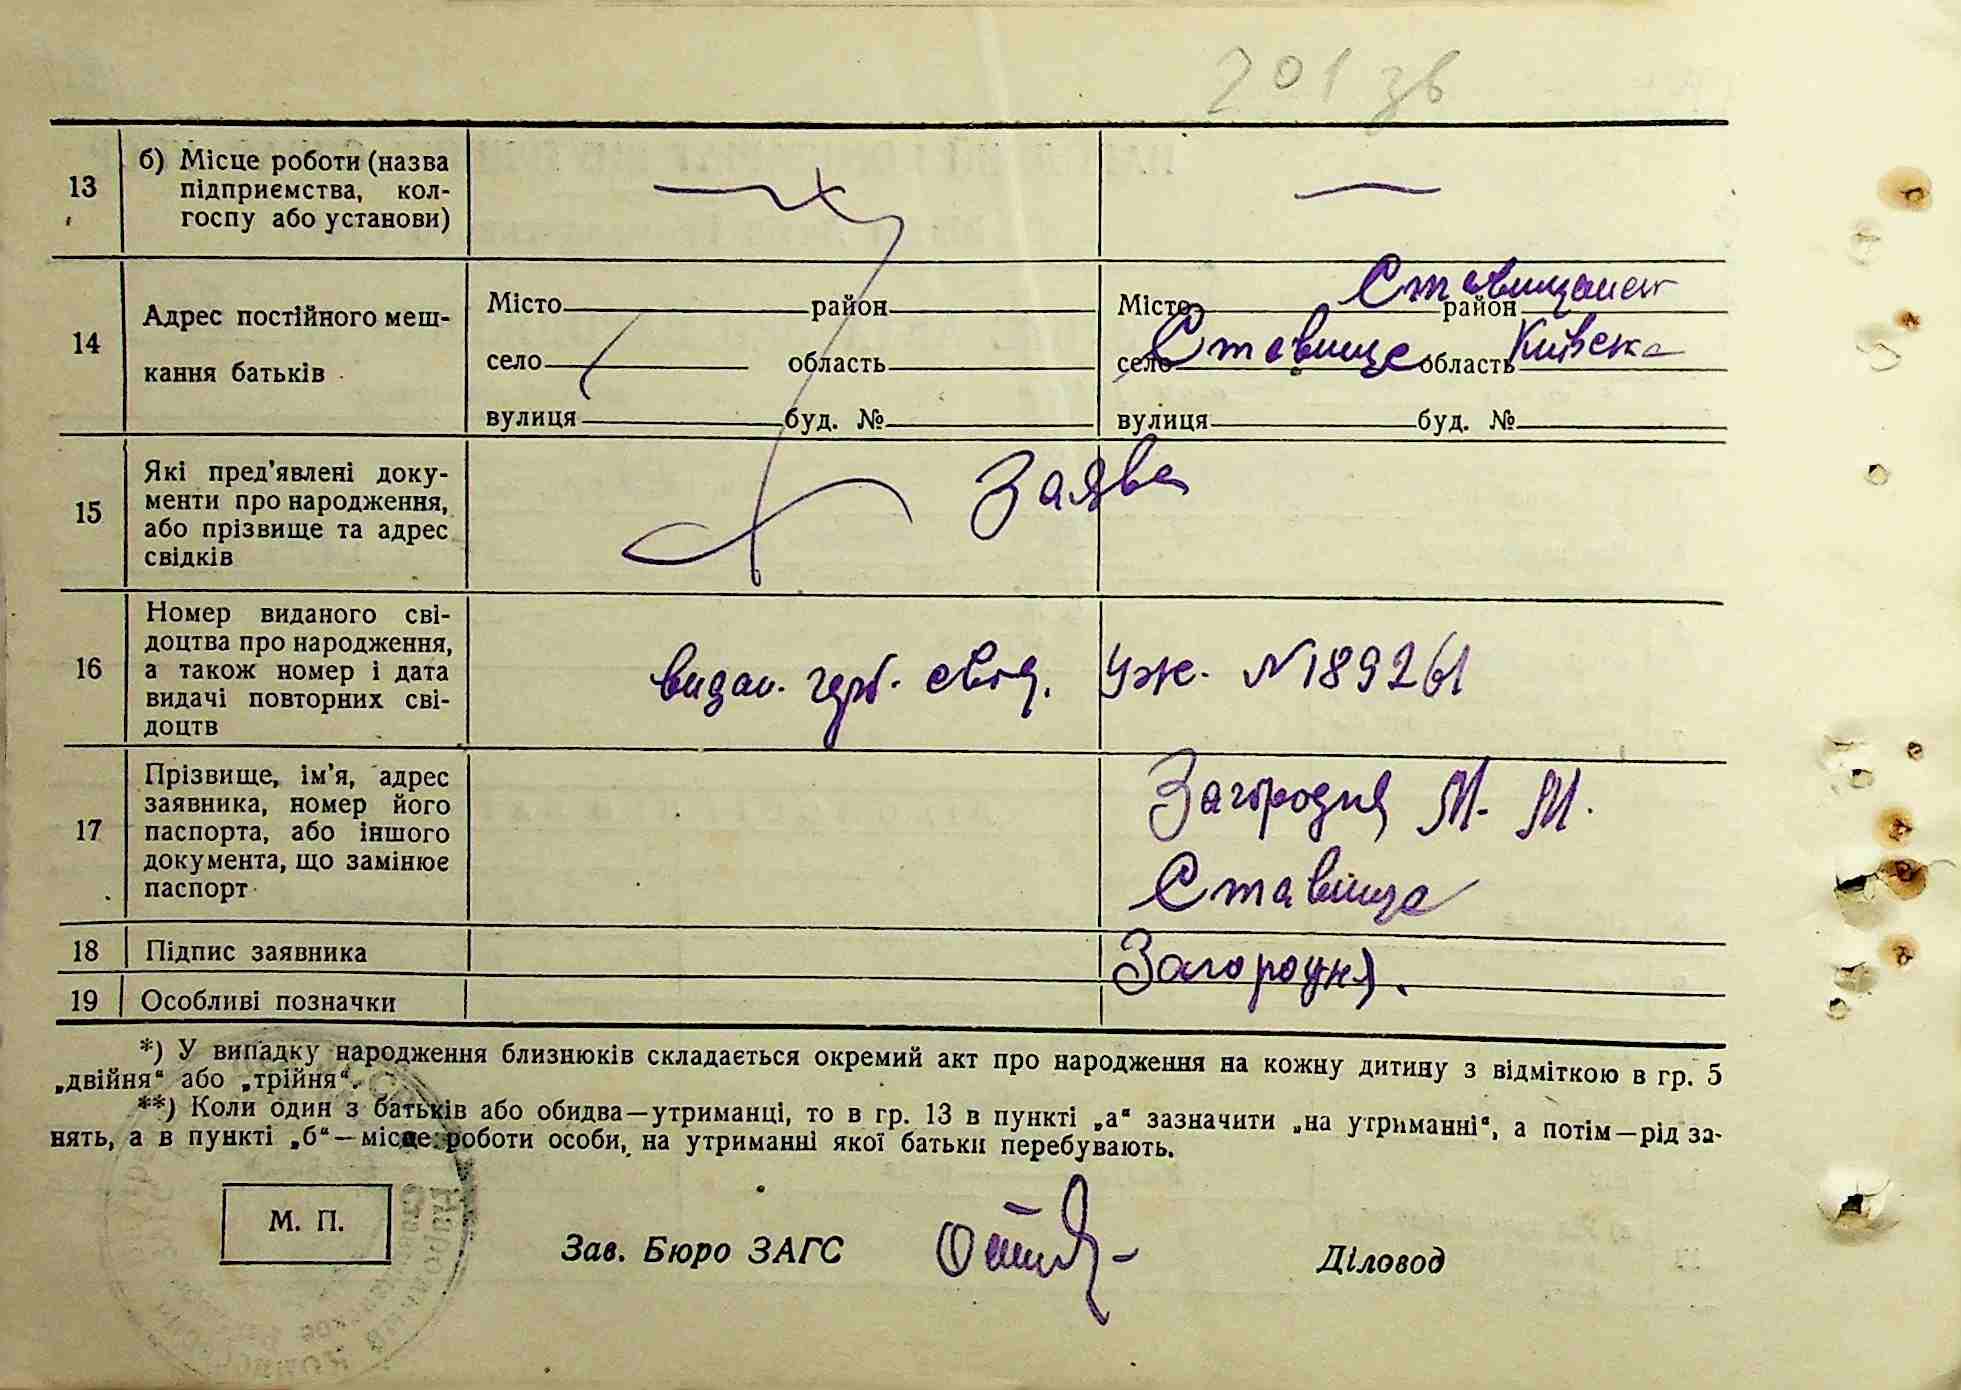 201 зв
13
б) Місце роботи (назва
підприємства, кол-
госпу або установи)
14
Адрес постійного меш-
кання батьків
Місто район
село область
вулиця буд. №
Місто район Ставищанськ
село Ставище область Київська
вулиця буд. №
15
Які пред'явлені доку-
менти про народження,
або прізвище та адрес
свідків
Заява
16
Номер виданого сві-
доцтва про народження,
а також номер і дата
видачі повторних сві-
доцтв
видан. герб. свід. УЖ. №189261
17
Прізвище, ім'я, адрес
заявника, номер його
паспорта, або іншого
документа, що замінює
паспорт
Загородня М. М.
Ставище
18
Підпис заявника
Загородня.
19
Особливі позначки
*) У випадку народження близнюків складається окремий акт про народження на кожну дитину з відміткою в гр. 5
„двійня“ або „трійня“.
**) Коли один з батьків або обидва—утриманці, то в гр. 13 в пункті „а“ зазначити „на утриманні“, а потім—рід за-
нять, а в пункті „б“—місце роботи особи, на утриманні якої батьки перебувають.
М. П.
Зав. Бюро ЗАГС
Діловод